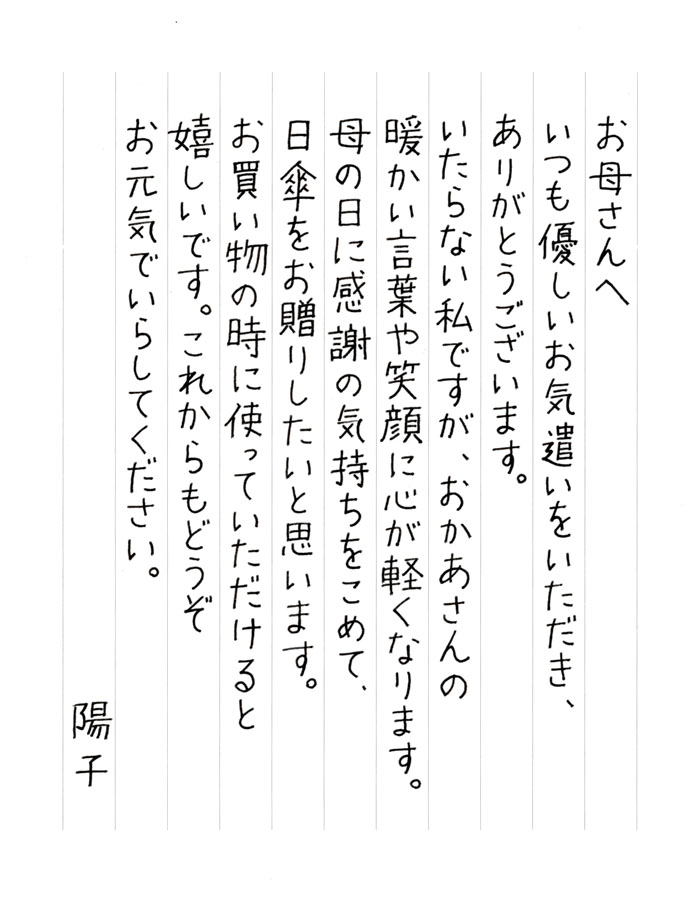 お母さんへ
いつも優しいお気遣いをいただき、
ありがとうございます。
いたらない私ですが、おかあさんの
暖かい言葉や笑顔に心が軽くなります。
母の日に感謝の気持ちをこめて、
日傘をお贈りしたいと思います。
お買い物の時に使っていただけると
嬉しいです。これからもどうぞ
お元気でいらしてください。
陽子